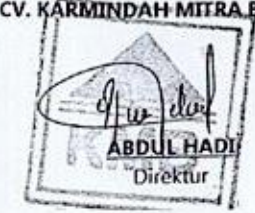 CV. KARMINDAH MITRA
ABDUL HADI
Direktur